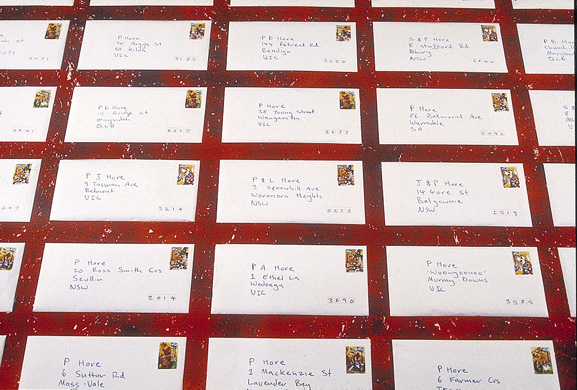 P Hore
70 Argyle St
St Kilda
VIC
3182
P D Hore
144 Retreat Rd
Bendigo
VIC
3550
S & P Hore
8 Stafford Rd
Albury
NSW
2640
P B Hore
QLD
P E Hore
10 Bridge St
QLD
P Hore
38 Young Street
Wangaratta
VIC
3677
P Hore
86 Balmoral Ave
Warradale
SA
5046
P J Hore
9 Tasman Ave
Belmont
VIC
3216
P & L Hore
3 Spoonbill Ave
Woronora Heights
NSW
2233
J & P Hore
14 Gore St
Balgownie
NSW
2519
P Hore
20 Ross Smith Crs
Scullin
NSW
2614
P A Hore
1 Ethel La
Wodonga
VIC
3690
P Hore
'Woongoonoo'
Murray Downs
VIC
3585
P Hore
6 Suttor Rd
Moss-Vale
P Hore
1 Mackenzie St
Lavender Bay
P Hore
6 Farmer Crs